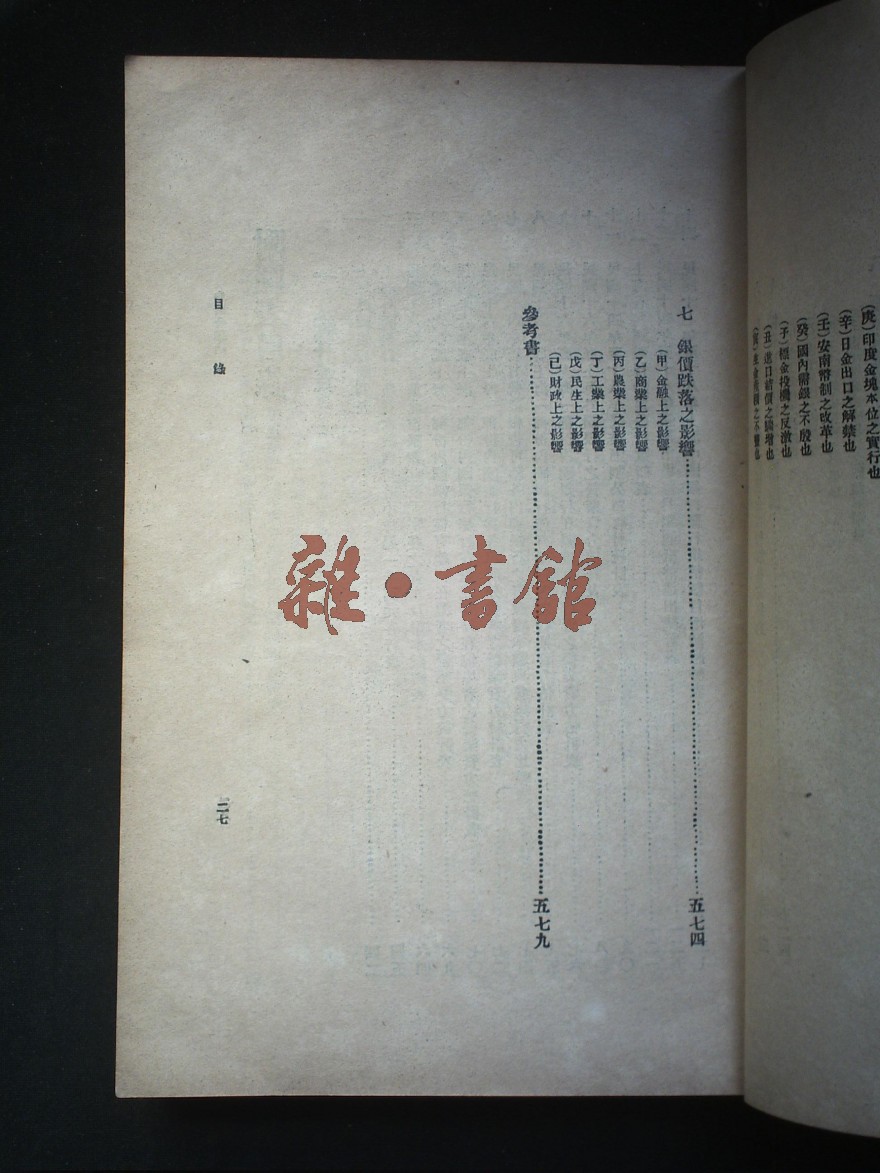 (庚)印度金塊本位之實行也
(辛)日金出口之解禁也
(壬)安南幣制之改革也
(癸)國內需銀之不殷也
(子)標金投機之反激也
(丑)進口結價之關增也
七 銀價跌落之影響……五七四
(甲)金融上之影響
(乙)商業上之影響
(丙)農業上之影響
(丁)工業上之影響
(戊)民生上之影響
(己)財政上之影響
參考書……五七九
目錄
二七
雜·書館